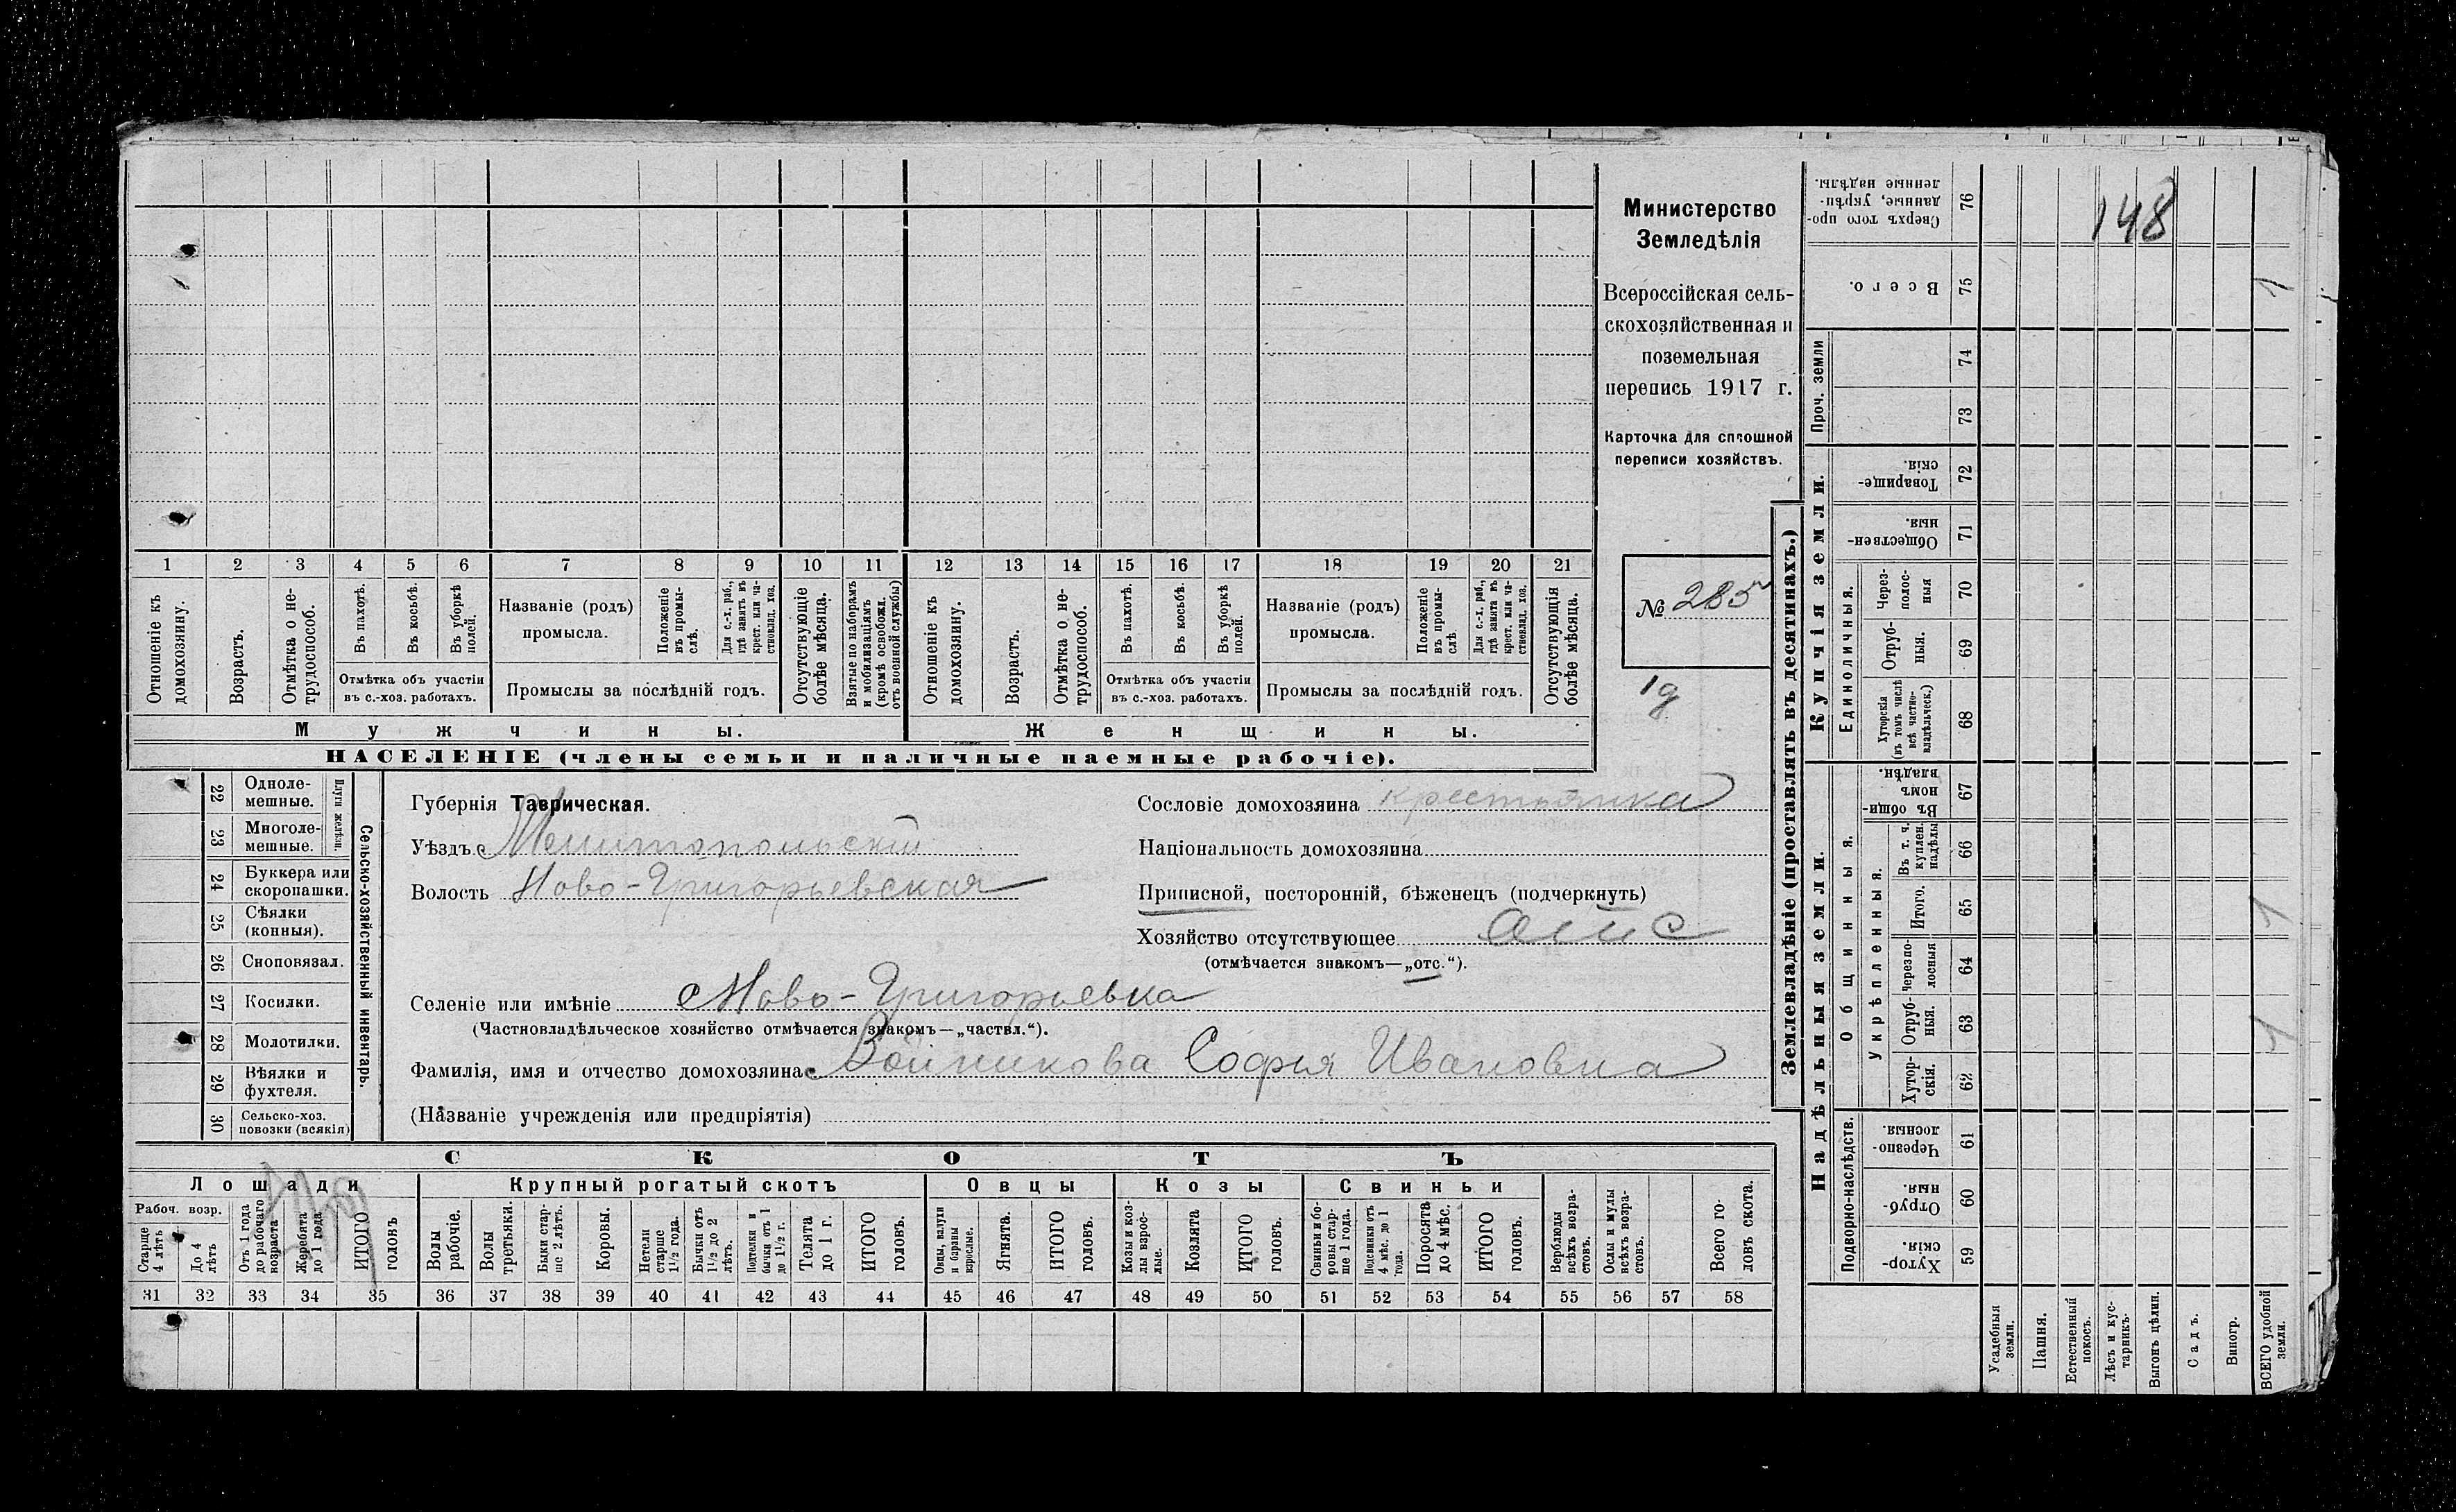 148
Министерство
Земледѣлія
Всероссійская сель-
скохозяйственная и
поземельная
перепись 1917 г.
Карточка для сплошной
переписи хозяйствъ.
№ 285
1 д
1 2 3 4 5 6 7 8 9 10 11 12 13 14 15 16 17 18 19 20 21
Отношеніе къ домохозяину.
Возрастъ.
Отмѣтка о не-трудоспособ.
Въ пахотѣ.
Въ косьбѣ.
Въ уборкѣ полей.
Отмѣтка объ участіи
въ с.-хоз. работахъ.
Названіе (родъ)
промысла.
Положеніе въ промы-слѣ.
Для с.-х. раб., гдѣ занятъ въ крест. или ча-стновлад. хоз.
Промыслы за послѣдній годъ.
Отсутствующіе болѣе мѣсяца.
Взятые по наборамъ и мобилизаціямъ (кромѣ освобожд. отъ военной службы)
Отношеніе къ домохозяину.
Возрастъ.
Отмѣтка о не-трудоспособ.
Въ пахотѣ.
Въ косьбѣ.
Въ уборкѣ полей.
Отмѣтка объ участіи
въ с.-хоз. работахъ.
Названіе (родъ)
промысла.
Положеніе въ промы-слѣ.
Для с.-х. раб., гдѣ занята въ крест. или ча-стновлад. хоз.
Промыслы за послѣдній годъ.
Отсутствующія болѣе мѣсяца.
Мужчины.
Женщины.
НАСЕЛЕНІЕ (члены семьи и наличные наемные рабочіе).
Сельско-хозяйственный инвентарь.
Плуги желѣзн.
22 Одноле-мешные.
23 Многоле-мешные.
24 Буккера или скоропашки.
25 Сѣялки (конныя).
26 Сноповязал.
27 Косилки.
28 Молотилки.
29 Вѣялки и фухтеля.
30 Сельско-хоз. повозки (всякія)
Губернія Таврическая.
Уѣздъ Мелитопольскій
Волость Ново-Григорьевская
Сословіе домохозяина крестьянка
Національность домохозяина
Приписной, посторонній, бѣженецъ (подчеркнуть)
Хозяйство отсутствующее отс
(отмѣчается знакомъ—„отс.“).
Селеніе или имѣніе Ново-Григорьевка
(Частновладѣльческое хозяйство отмѣчается знакомъ—„частвл.“).
Фамилія, имя и отчество домохозяина Войникова Софья Ивановна
(Названіе учрежденія или предпріятія)
СКОТЪ
Лошади
Крупный рогатый скотъ
Овцы
Козы
Свиньи
Рабоч. возр.
Старше 4 лѣтъ
До 4 лѣтъ
Отъ 1 года до рабочаго возраста
Жеребята до 1 года
ИТОГО головъ
Волы рабочіе.
Волы третьяки.
Быки стар-ше 2 лѣтъ.
Коровы.
Нетели старше 1½ года.
Бычки отъ 1½ до 2 лѣтъ.
Подтелки и бычки отъ 1 до 1½ г.
Телята до 1 г.
ИТОГО головъ.
Овцы, валухи и бараны взрослые.
Ягнята.
ИТОГО головъ.
Козы и коз-лы взрос-лые.
Козлята
ИТОГО головъ.
Свиньи и бо-ровы стар-ше 1 года.
Подсвинки отъ 4 мѣс. до 1 года.
Поросята до 4 мѣс.
ИТОГО головъ.
Верблюды всѣхъ возра-стовъ.
Ослы и мулы всѣхъ возра-стовъ.
Всего го-ловъ скота.
31 32 33 34 35 36 37 38 39 40 41 42 43 44 45 46 47 48 49 50 51 52 53 54 55 56 57 58
Землевладѣніе (проставлять въ десятинахъ.)
Купчія земли.
Надѣльныя земли.
Сверхъ того про-данные, укрѣп-ленные надѣлы. 76
Всего. 75
Проч. земли
74
73
Товарище-скія. 72
Обществен-ныя. 71
Единоличныя.
Через-полос-ныя 70
Отруб-ныя. 69
Хуторскія (въ томъ числѣ всѣ частно-владѣльческ.) 68
Общинныя.
Въ общи-номъ владѣн. 67
Укрѣпленныя.
Въ т. ч. куплен. надѣлы 66
Итого. 65
Черезпо-лосныя 64
Отруб-ныя. 63
Хутор-скія. 62
Подворно-наслѣдств.
Черезпо-лосныя. 61
Отруб-ныя. 60
Хутор-скія. 59
Усадебныя земли.
Пашня.
Естественный покосъ.
Лѣсъ и кус-тарникъ.
Выгонъ цѣлин.
Садъ.
Виногр.
ВСЕГО удобной земли.
1
1
1